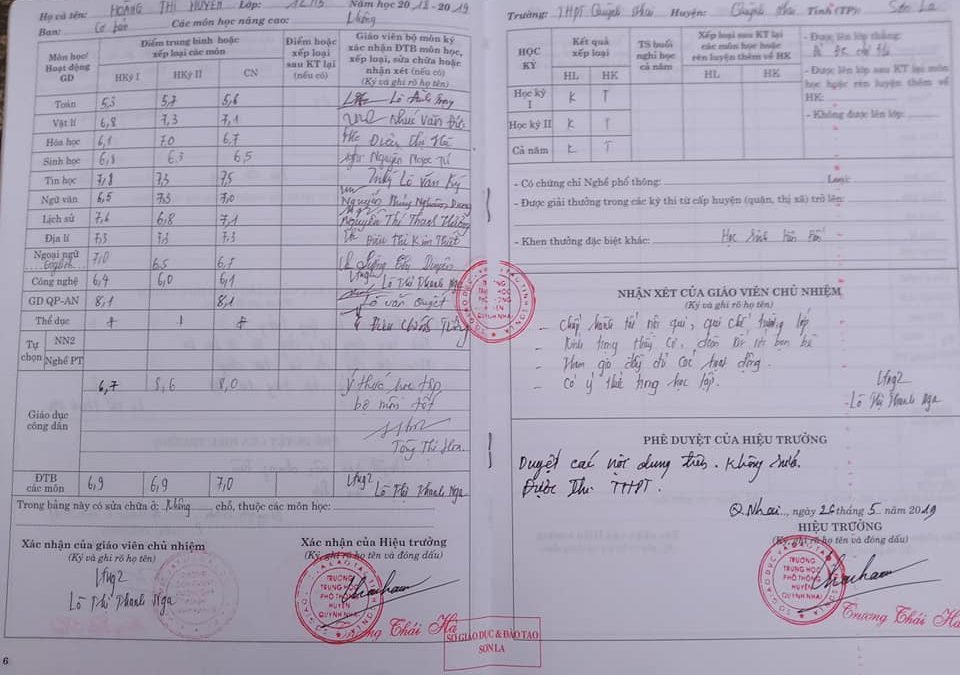 Họ và tên: HOÀNG THỊ HUYỀN Lớp: Năm học 2018 - 2019
Ban: Cơ bản Các môn học nâng cao: Không
Môn học/ Hoạt động GD
Điểm trung bình hoặc xếp loại các môn
HKỳ I HKỳ II CN
Điểm hoặc xếp loại sau KT lại (nếu có)
Giáo viên bộ môn ký xác nhận ĐTB môn học, xếp loại, sửa chữa hoặc nhận xét (nếu có)
(Ký và ghi rõ họ tên)
Toán 5,3 5,7 5,6
Vật lí 6,8 7,3 7,1 Như Văn
Hóa học 6,1 7,0 6,7 Điêu Thị
Sinh học 6,8 6,3 6,5 Nguyễn Ngọc Tú
Tin học 7,8 7,3 7,5 Lò Văn Ký
Ngữ văn 6,5 7,3 7,0 Nguyễn
Lịch sử 7,6 6,8 7,1 Nguyễn Thị Thanh
Địa lí 7,3 7,3 7,3 Điêu Thị Kim
Ngoại ngữ English 7,0 6,5 6,7 Duyên
Công nghệ 6,4 6,0 6,1 Lò Thị Thanh Nga
GD QP-AN 8,1 8,1 Lò Văn Quyết
Thể dục Điêu Chính
Tự chọn NN2
Nghề PT
Giáo dục công dân 6,7 8,6 8,0 ý thức học tập
bộ môn tốt
Tòng Thị Hoa
ĐTB các môn 6,9 6,9 7,0 Lò Thị Thanh Nga
Trong bảng này có sửa chữa ở: Không chỗ, thuộc các môn học:
Xác nhận của giáo viên chủ nhiệm
(Ký và ghi rõ họ tên)
Lò Thị Thanh Nga
Xác nhận của Hiệu trưởng
(Ký, ghi rõ họ tên và đóng dấu)
TRƯỜNG
TRUNG HỌC
PHỔ THÔNG
HUYỆN
QUỲNH NHAI
Trương Thái Hà
6
SỞ GIÁO DỤC & ĐÀO TẠO
SƠN LA
Trường: THPT Quỳnh Nhai Huyện: Quỳnh Nhai Tỉnh (TP): Sơn La
HỌC KỲ
Kết quả xếp loại
HL HK
TS buổi nghỉ học cả năm
Xếp loại sau KT lại các môn học hoặc rèn luyện thêm về HK
HL HK
Học kỳ I K T
Học kỳ II K T
Cả năm K T
- Được lên lớp thẳng:
- Được lên lớp sau KT lại môn học hoặc rèn luyện thêm về HK:
- Không được lên lớp:
- Có chứng chỉ Nghề phổ thông: Loại:
- Được giải thưởng trong các kỳ thi từ cấp huyện (quận, thị xã) trở lên:
- Khen thưởng đặc biệt khác: Học sinh tiên tiến
NHẬN XÉT CỦA GIÁO VIÊN CHỦ NHIỆM
(Ký và ghi rõ họ tên)
- Chấp hành tốt nội qui, qui chế trường lớp
- Kính trọng thầy cô, đoàn kết với bạn bè
- Tham gia đầy đủ các hoạt động.
- Có ý thức trong học tập.
Lò Thị Thanh Nga
PHÊ DUYỆT CỦA HIỆU TRƯỞNG
Duyệt các nội dung trên.
Được thi THPT.
Q.Nhai, ngày 26 tháng 5 năm 2019
HIỆU TRƯỞNG
(Ký, ghi rõ họ tên và đóng dấu)
TRƯỜNG
TRUNG HỌC
PHỔ THÔNG
HUYỆN
QUỲNH NHAI
Trương Thái Hà